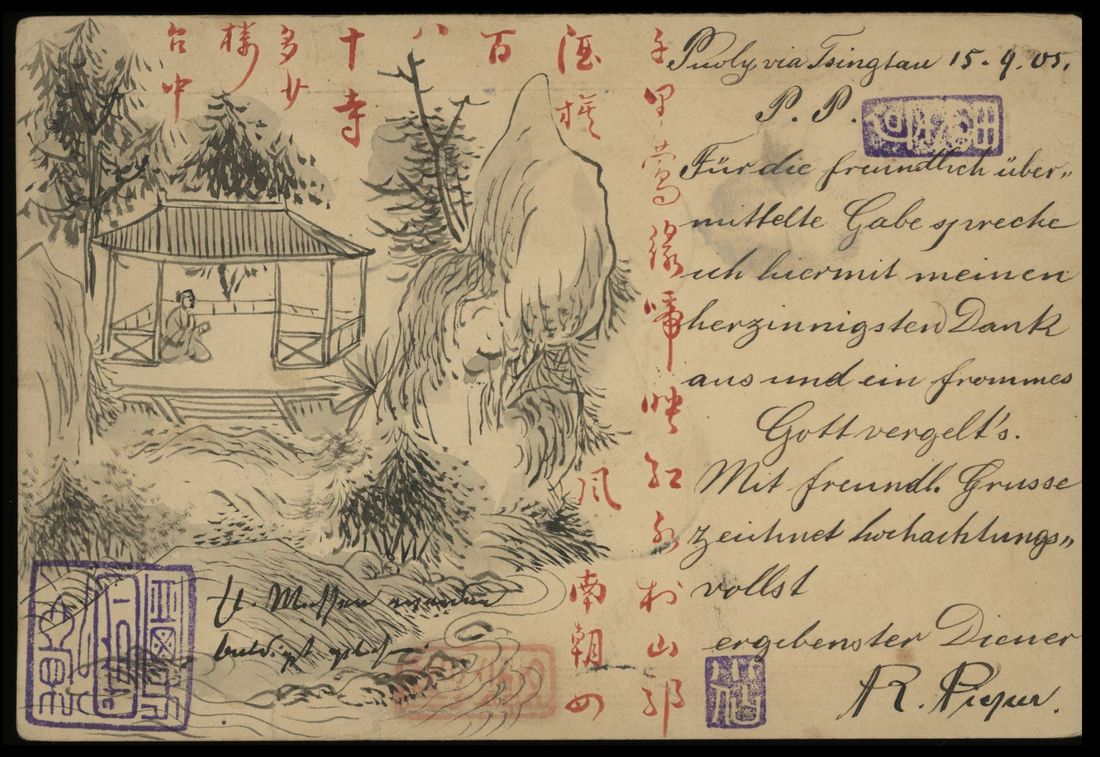 Puoly via Tsingtau 15.9.05.
P. P.
Für die freundlich über„
mittelte Gabe spreche
ich hiermit meinen
herzinnigsten Dank
aus und ein frommes
Gott vergelt's.
Mit freundl. Grusse
zeichnet hochachtungs„
vollst
ergebenster Diener
R. Pieper.
千里鶯綠啼映紅水村山郭
酒旗風南朝四
百
八
十寺
多少
樓
台中
H. Messen werden
baldigst